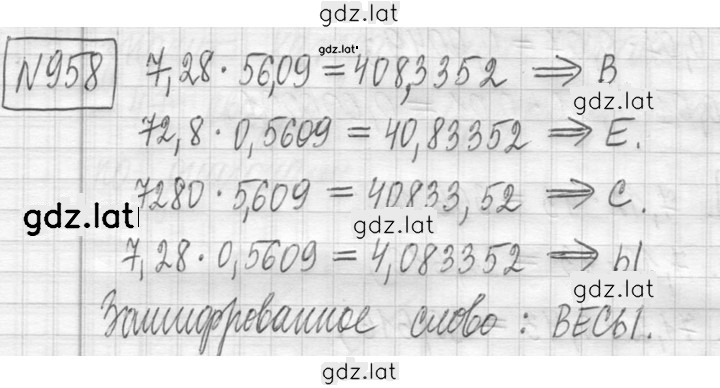 gdz.lat
gdz.lat
№958 7,28 · 56,09 = 408,3352 ⟹ В
gdz.lat
72,8 · 0,5609 = 40,83352 ⟹ Е.
7280 · 5,609 = 40833,52 ⟹ С.
gdz.lat
gdz.lat
7,28 · 0,5609 = 4,083352 ⟹ Ы
gdz.lat
Зашифрованное слово: ВЕСЫ.
gdz.lat